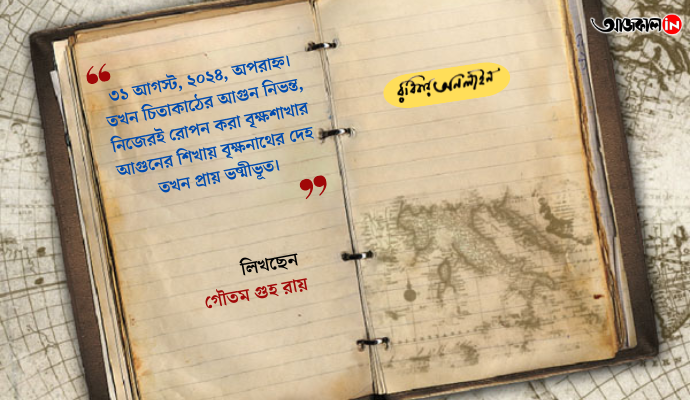 আজকাল IN
রবিবার অনলাইন
“
৩১ আগস্ট, ২০২৪, অপরাহ্ন।
তখন চিতাকাঠের আগুন নিভন্ত,
নিজেরই রোপন করা বৃক্ষশাখার
আগুনের শিখায় বৃক্ষনাথের দেহ
তখন প্রায় ভষ্মীভূত।
”
লিখছেন
গৌতম গুহ রায়